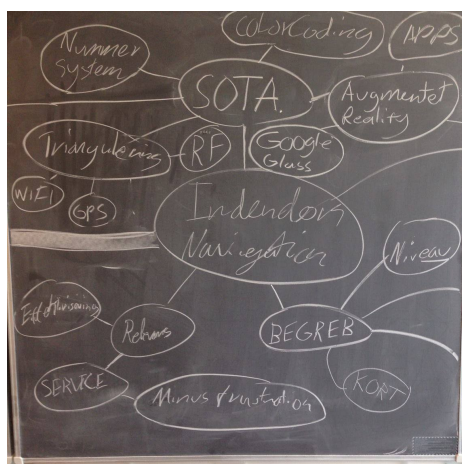 ColorCoding
APPS
Nummer
system
SOTA.
Augmentet
Reality
Triangulering
RF
Google
Glass
WiFi
GPS
Indendørs
Navigation
Niveau
Effektivisering
Relevans
BEGREB
SERVICE
Minus frustration
KORT